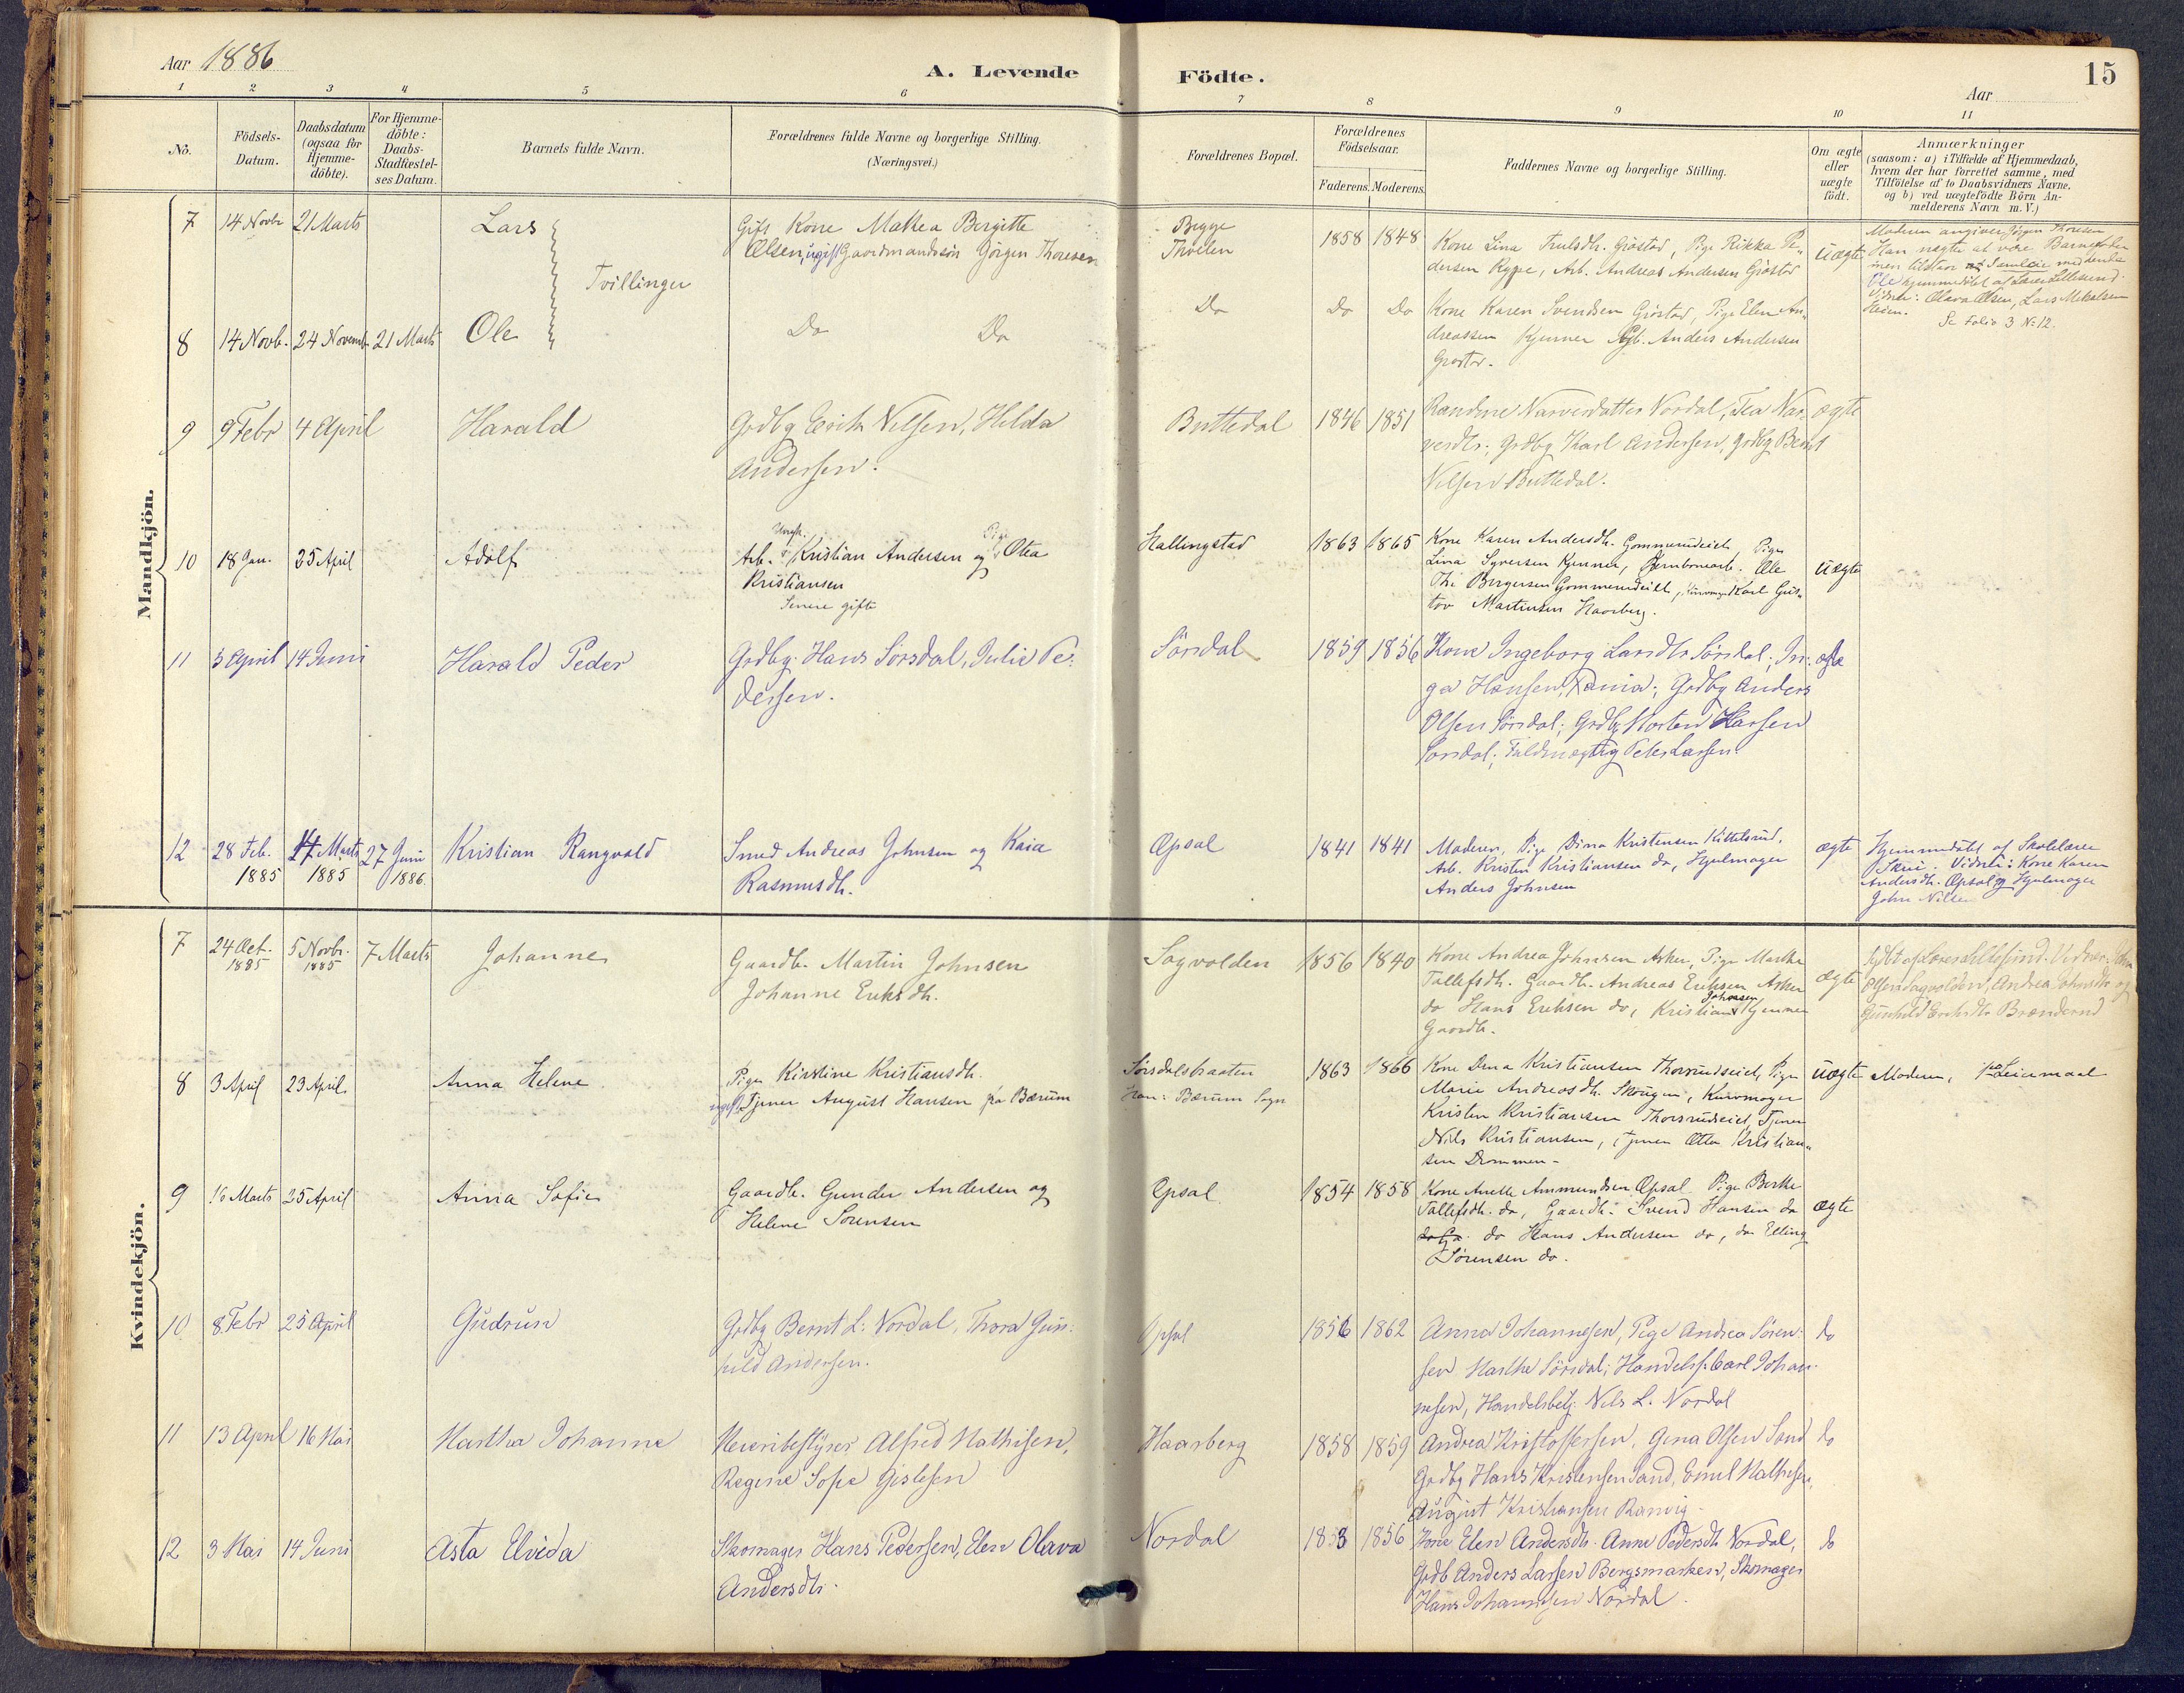 Aar 1886
A. Levende Födte.
15
Aar
1 2 3 4 5 6 7 8 9 10 11
No.
Födsels-Datum.
Daabsdatum (ogsaa for Hjemme-döbte).
For Hjemme-döbte: Daabs-Stadfæstel-ses Datum.
Barnets fulde Navn.
Forældrenes fulde Navne og borgerlige Stilling. (Næringsvei.)
Forældrenes Bopæl.
Forældrenes Födselsaar.
Faderens. Moderens.
Faddernes Navne og borgerlige Stilling.
Om ægte eller uægte födt.
Anmærkninger
(saasom: a) i Tilfælde af Hjemmedaab,
hvem der har forrettet samme, med
Tilföielse af to Daabsvidners Navne,
og b) ved uægtefödte Börn An-
melderens Navn m. V.)
Mandkjön.
7 14 Novbr 21 Marts Lars
Tvillinger
Gift Kone Mathea Birgitte
Olsen, ugift Gaardmandssön Jörgen Thoresen
Begge
Thveten
1858 1848
Kone Lina Trulsdh. Gröstad, Pige Rikka Pe-
dersen Rype, Arb. Andreas Andersen Gröstad
Uægte
Moderen angiver Jörgen Thoresen
Han negte at være Barnefader
men tilstaar
Ole hjemmedöbt af Lærer Lillesund.
Vidner: Olava Olsen, Lars Mikelsen
Heien.
Se folio 3 N: 12.
8 14 Novb. 24 Novemb 21 Marts Ole
Do Do
Do
Do Do
Kone Karen Svendsen Gröstad, Pige Elen An-
dreassen Kjenner Arb. Anders Andersen
Gröstad.
9 9 Febr 4 April Harald
Grdbg Erik Nilsen, Hilda
Andersen.
Buttedal
1846 1851
Randine Narvesdatter Nordal, Tea Nar-
vesdtr; Grdbg Karl Andersen, Grdbg Bernt
Nilsen Buttedal.
ægte
10 18 Jan. 25 April Adolf
Ungk. Pige
Arb. Kristian Andersen og Otea
Kristiansen
Senere gifte
Hallingstad
1863 1865
Kone Karen Andersdh. Gommerudeiet, Pige
Lina Syversen Kjenner, Jernbanearb. Ole
Th. Bergersen Gommerudeiet, Karl Gus-
tav Martinsen Haarberg.
uægte
11 3 April 14 Juni Harald Peder
Grdbg. Hans Sörsdal, Julie Pe-
dersen.
Sörsdal
1859 1856
Kone Ingeborg Larsdtr Sörsdal; In-
ga Hansen, Xania; Grdbg Anders
Olsen Sörsdal; Grdbg Morten Hansen
Sörsdal; Fuldmægtig Peter Larsen.
ægte
12 28 Feb. 1885 14 Marts 1885 27 Juni 1886. Kristian Rangvald
Smed Andreas Johnsen og Kaia
Rasmusdh.
Opsal
1841 1841
Moderen, Pige Dina Kristensen Kittelsrud,
Arb. Kristen Kristiansen do, Hjulmager
Anders Johnsen
ægte
Hjemmedöbt af Skolelærer
Skui. Vidner: Kone Karen
Andersdh. Opsal og Hjulmager
John Nilsen
Kvindekjön.
7 24 Oct. 1885 5 Novbr. 1885 7 Marts Johanne
Gaardb. Martin Johnsen
Johanne Eriksdh.
Sagvolden
1856 1840
Kone Andrea Johnsen Asker, Pige Marthe
Tallefsdh. Gaardb. Andreas Eriksen Asker
do Hans Eriksen do, Kristian Johnsen Kjenner
Gaardb.
ægte
Hjdbt af Lærer Lillesund. Vidner:
Olsen Sagvolden, Andrea Johnsdtr og
Gunhild Eriksdtr Brenderud
8 3 April 23 April. Anna Helene
Pige Kirstine Kristiansdh.
ugift Tjener August Hansen fra Bærum
Sörsdalsbraaten
Han: Bærum Sogn
1863 1866
Kone Dina Kristiansen Thorsrudeiet, Pige
Marie Andreasdh. Skougen, Kurvmager
Kristen Kristiansen Thorsrudeiet, Tjener
Nils Kristiansen, Tjener Otto Kristian-
sen Drammen.
uægte
Moderen, 1ste Leiermaal
9 16 Marts 25 April Anna Sofie
Gaardb. Gunder Andersen og
Helene Sörensen
Opsal
1854 1858
Kone Anette Ammundsen Opsal Pige Berthe
Tallefsdh. do, Gaardb. Svend Hansen do
do Hans Andersen do, do Elling
Sörensen do.
ægte
10 8 Febr 25 April Gudrun
Grdbg Bernt L. Nordal, Thora Gun-
hild Andersen.
Opsal
1856 1862
Anna Johannesen, Pige Andrea Sören-
sen Marthe Sörsdal; Handelsf. Carl Johan-
nesen, Handelsbetj. Nils L. Nordal
do
11 13 April 16 Mai Martha Johanne
Meieribestyrer Alfred Mathisen,
Regine Sofie Gislesen
Haarberg
1858 1859
Andrea Kristoffersen, Gina Olsen Sand
Grdbg Hans Kristensen Sand, Emil Mathisen,
August Kristiansen Ramvig.
do
12 3 Mai 14 Juni Asta Elvida
Skomager Hans Pedersen, Elen Olava
Andersdtr.
Nordal
1853 1856
Kone Elen Andersdtr. Anne Pedersdtr Nordal,
Grdb Anders Larsen Bergsmarken, Skomager
Hans Johannesen Nordal.
do